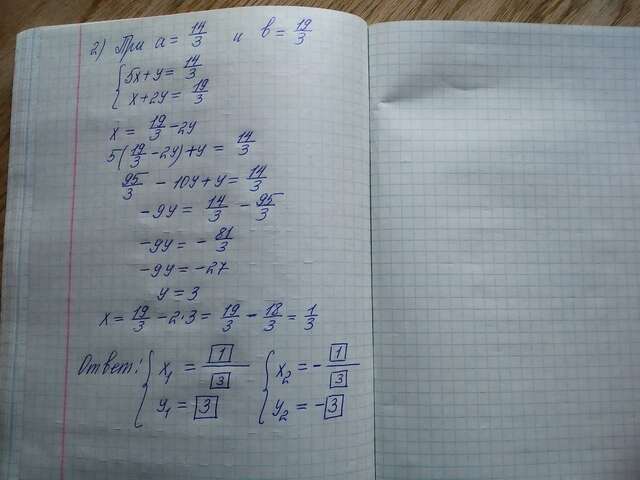 2) При a = 14/3 и b = 19/3
{ 5x + y = 14/3
x + 2y = 19/3
x = 19/3 - 2y
5(19/3 - 2y) + y = 14/3
95/3 - 10y + y = 14/3
-9y = 14/3 - 95/3
-9y = - 81/3
-9y = -27
y = 3
x = 19/3 - 2·3 = 19/3 - 18/3 = 1/3
Ответ: { x₁ = 1/3 { x₂ = - 1/3
y₁ = 3 y₂ = -3